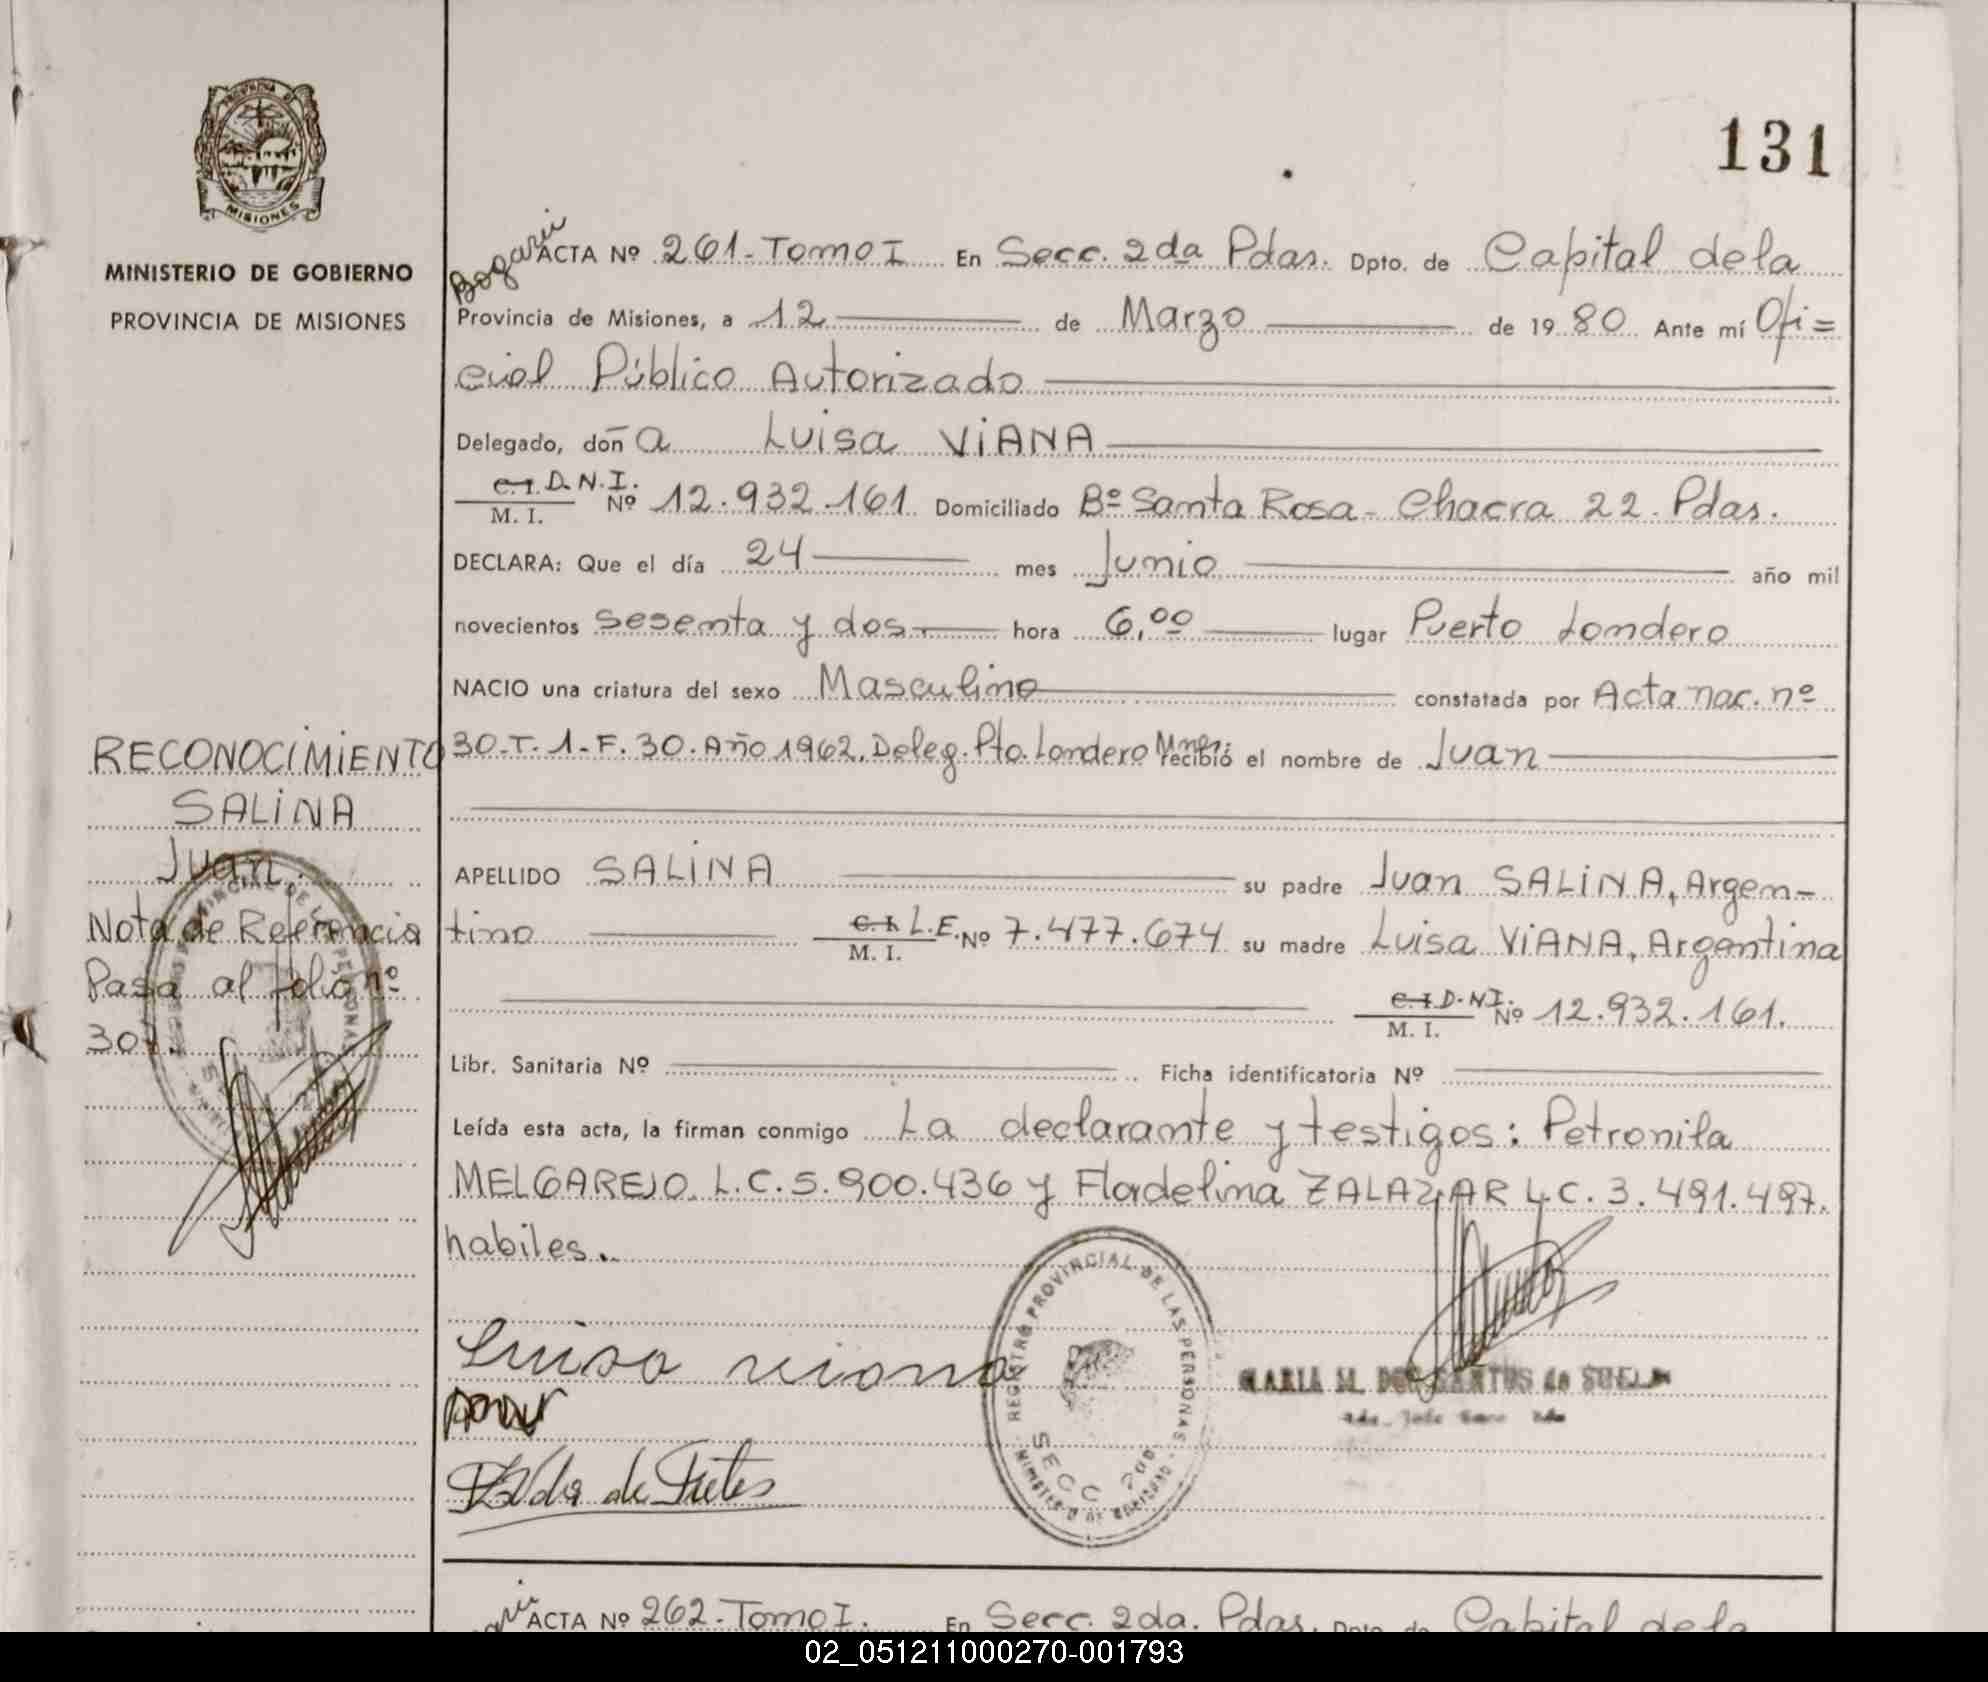 131
PROVINCIA D
MISIONES
MINISTERIO DE GOBIERNO
PROVINCIA DE MISIONES
Bogarin
ACTA Nº 261-Tomo I En Secc. 2da Pdas. Dpto. de Capital de la
Provincia de Misiones, a 12 de Marzo de 1980 Ante mí Ofi=
cial Público Autorizado
Delegado, doña Luisa VIANA
C.I. D.N.I.
M. I. Nº 12.932.161 Domiciliado Bº Santa Rosa - Chacra 22. Pdas.
DECLARA: Que el día 24 mes Junio año mil
novecientos sesenta y dos hora 6,00 lugar Puerto Londero
NACIO una criatura del sexo Masculino constatada por Acta nac. nº
30-T. 1-F. 30. Año 1962. Deleg. Pto. Londero Mnes. recibió el nombre de Juan
APELLIDO SALINA su padre Juan SALINA, Argen-
tino C.I. L.E. Nº 7.477.674 su madre Luisa VIANA, Argentina
M. I.
C.I D.N.I. Nº 12.932.161.
M. I.
Libr. Sanitaria Nº Ficha identificatoria Nº
Leída esta acta, la firman conmigo La declarante y testigos: Petronila
MELGAREJO L.C. 5.900.436 y Flordelina ZALAZAR L.C. 3.491.497.
habiles.
RECONOCIMIENTO
SALINA
Juan.
Nota de Referencia
Pasa al folio nº
301.
Luisa viana
REGISTRO PROVINCIAL DE LAS PERSONAS
SECC 2da
MINISTERIO DE GOBIERNO
MARIA M. DOS SANTOS de
ACTA Nº 262-Tomo I. En Secc. 2da. Pdas. Dpto. de Capital de la
02_051211000270-001793